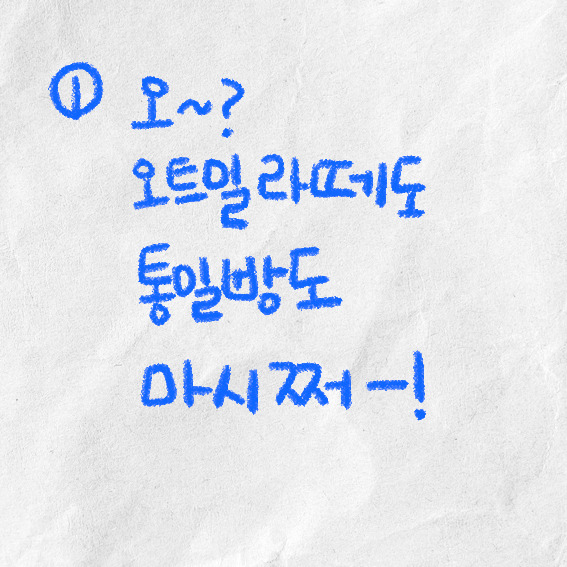 ① 오~?
오트밀 라떼도
통밀빵도
마시쩌-!